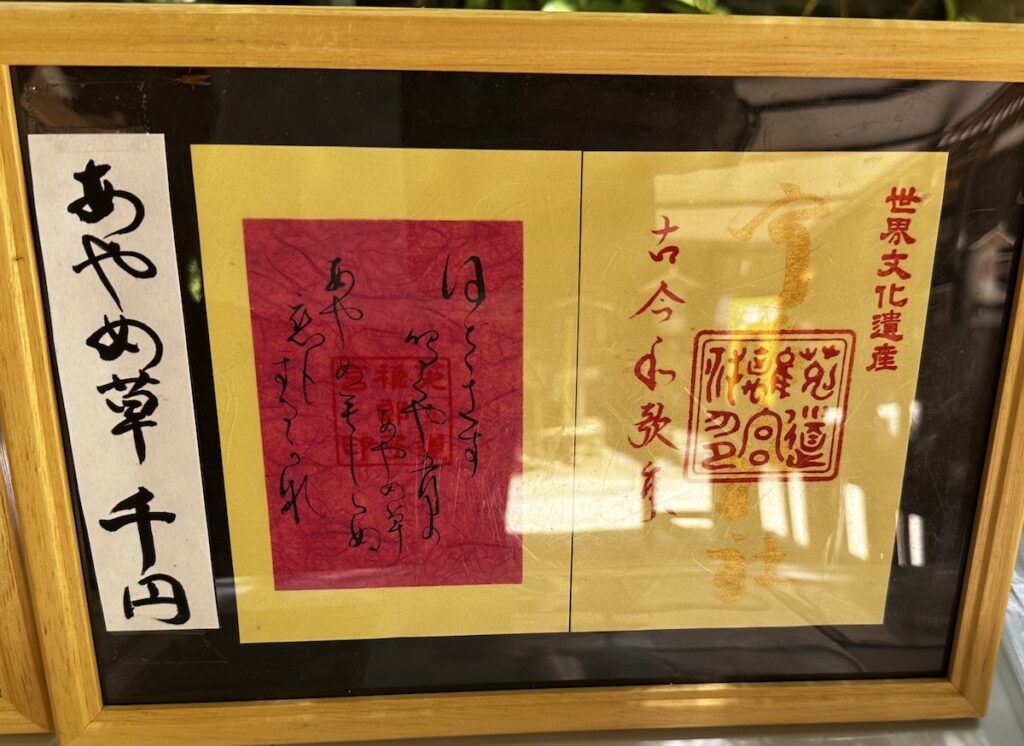 世界文化遺産
菟道
離宮
古今和歌集
ほとゝきす
鳴くや五月の
あやめ草
あやめもしらぬ
恋もする可那
あやめ草 千円